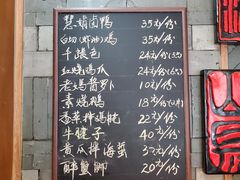 慧娟卤鸭 35元/份
白切(虾油)鸡 35元/份
千张包 24元/份
红烧鸡爪 24元/份
老鸭萝卜 22元/份
素烧鹅 18元/份
香菜拌鸡胗 22元/份
牛腱子 40元/份
黄瓜拌海蜇 32元/份
醉蟹脚 20元/份